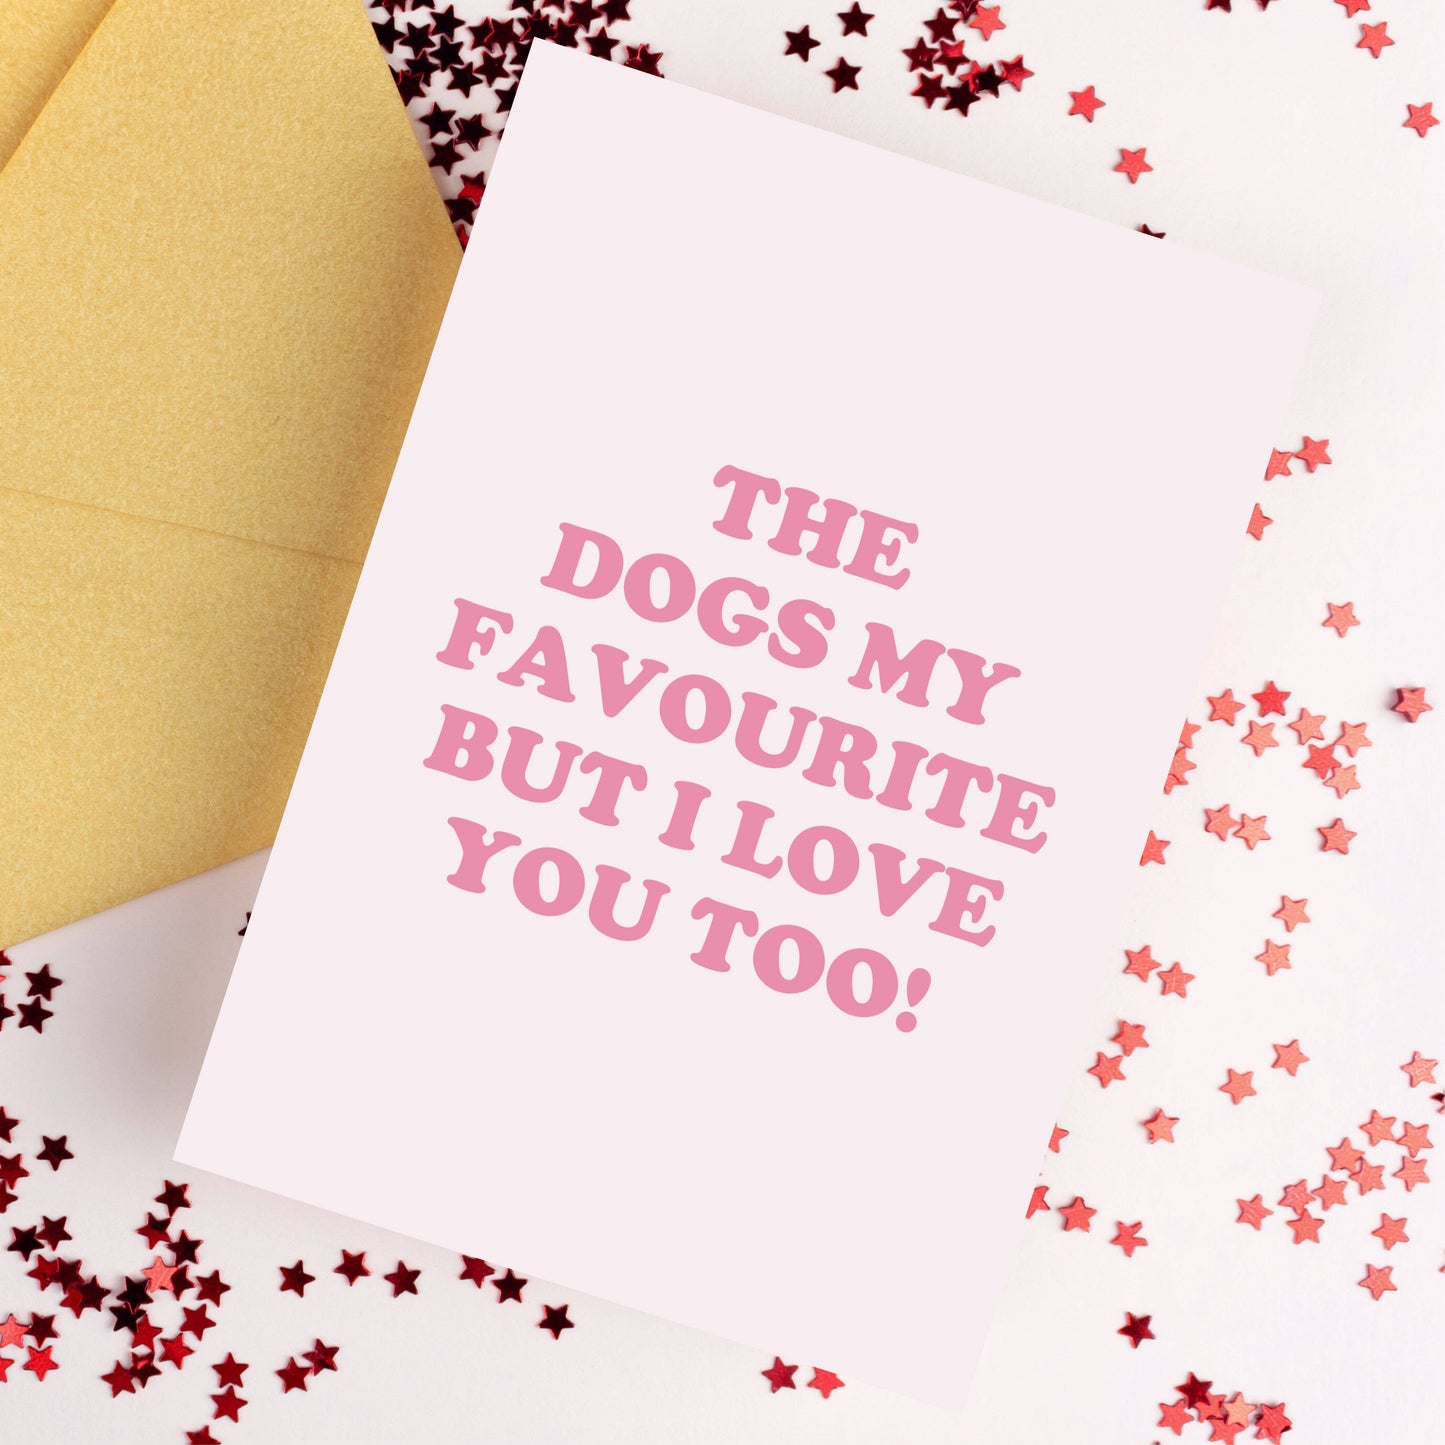 THE
DOGS MY
FAVOURITE
BUT I LOVE
YOU TOO!